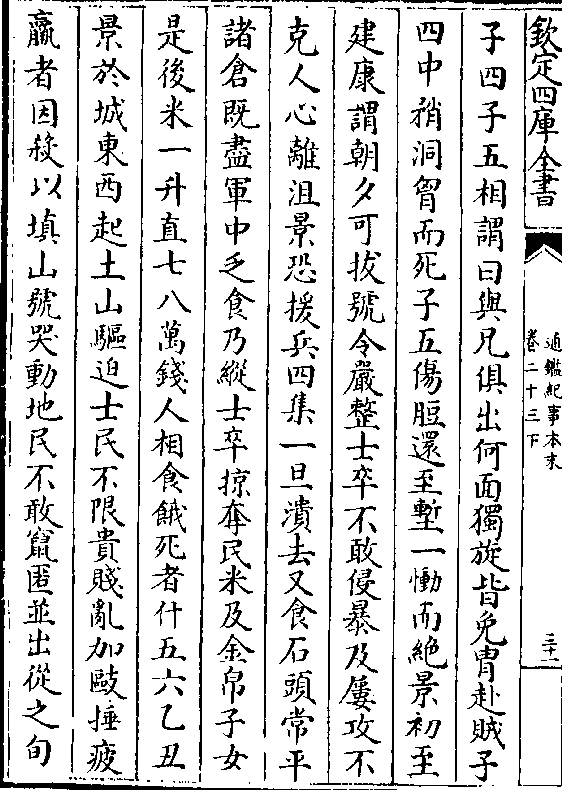 欽定四庫全書
通鑑紀事本末
卷二十三下
三十一
子四子五相謂曰與兄俱出何面獨旋皆免冑赴賊子
四中矟洞胷而死子五傷脰還至塹一慟而絶景初至
建康謂朝夕可拔號令嚴整士卒不敢侵暴及屢攻不
克人心離沮景恐援兵四集一旦潰去又食石頭常平
諸倉既盡軍中乏食乃縱士卒掠奪民米及金帛子女
是後米一升直七八萬錢人相食餓死者什五六乙丑
景於城東西起土山驅迫士民不限貴賤亂加毆捶疲
羸者因殺以填山號哭動地民不敢竄匿並出從之旬